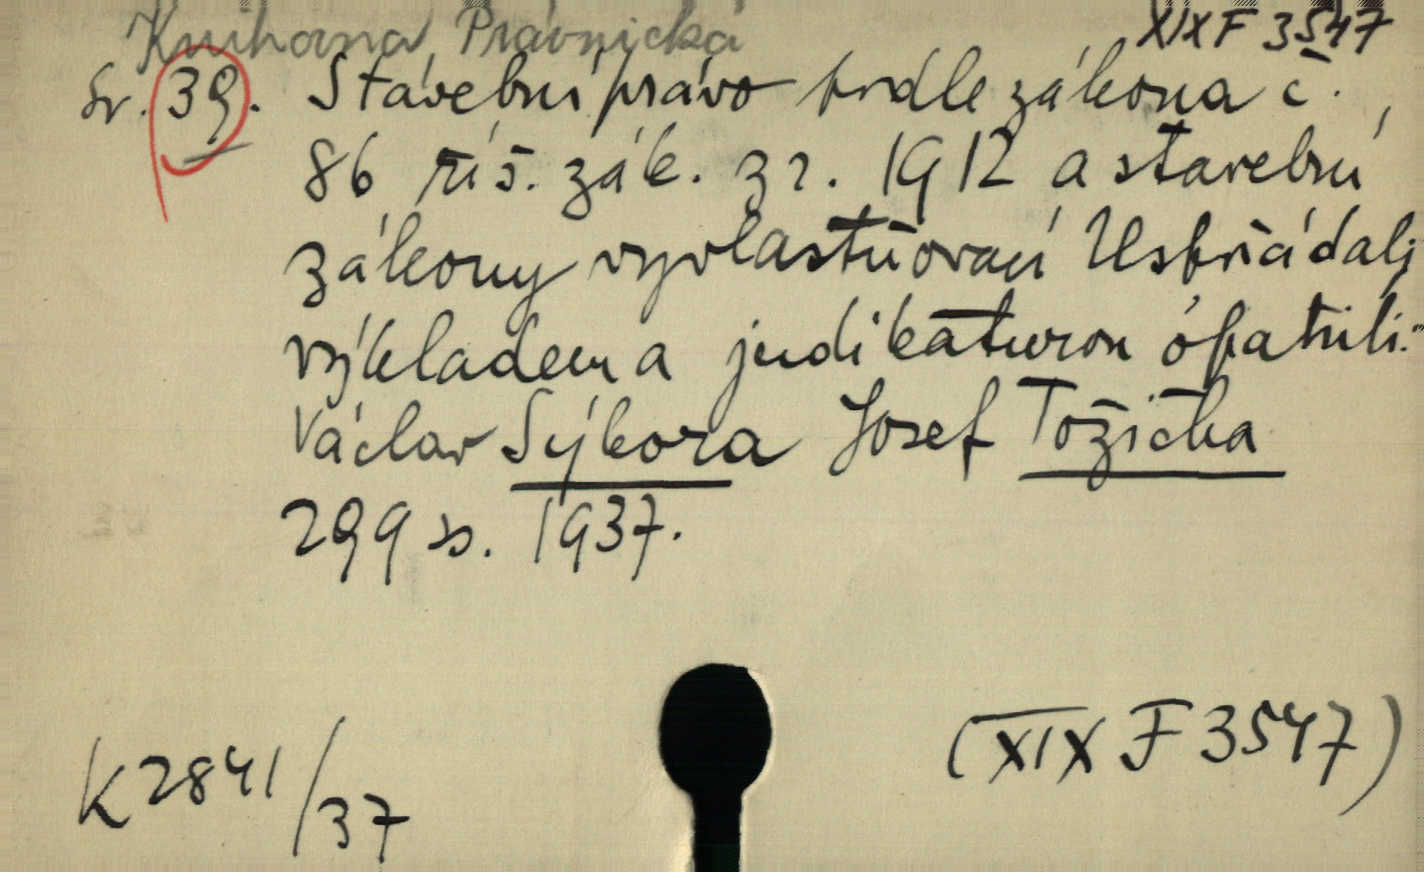 Knihovna Právnická XIX F 3547
Sv. 39. Stavební právo podle zákona č.
86 říš. zák. z r. 1912 a stavební
zákony vyvlastňovací Uspořádali,
výkladem a judikaturou opatřili:
Václav Sýkora Josef Tožička
299 s. 1937.
K 2841/37
(XIX F 3547)